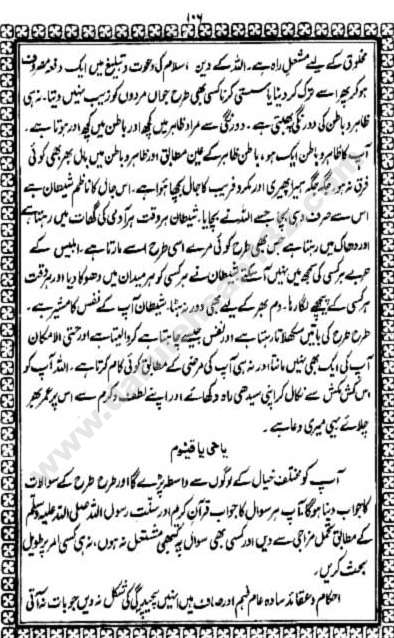 ۱۰۶
مخلوق کے لیے مشعلِ راہ ہے۔ اللہ کے دین ، اسلام کی دعوت و تبلیغ میں ایک دفعہ مصروف
ہو کر پھر اسے ترک کر دینا یا سستی کرنا کسی بھی طرح جواں مردوں کو زیب نہیں دیتا۔ نہ ہی
ظاہر و باطن کی دو رنگی پھبتی ہے۔ دو رنگی سے مراد ظاہر میں کچھ اور باطن میں کچھ اور ہوتا ہے۔
آپ کا ظاہر و باطن ایک ہو، باطن ظاہر کے عین مطابق اور ظاہر و باطن میں بال بھر بھی کوئی
فرق نہ ہو جگہ جگہ ہیرا پھیری اور مکر و فریب کا جال بچھا ہوا ہے۔ اس جال کا ناظم شیطان ہے
اس سے صرف وہی بچا جسے اللہ نے بچایا۔ شیطان ہر وقت ہر آدمی کی گھات میں رہتا ہے
اور دھاک میں رہتا ہے جس بھی طرح کوئی مرے اسی طرح اسے مارتا ہے۔ ابلیس کے
حربے ہر کسی کی سمجھ میں نہیں آسکتے شیطان نے ہر کسی کو ہر میدان میں دھوکا دیا اور ہر وقت
ہر کسی کے پیچھے لگا رہا۔ دم بھر کے لیے بھی دور نہ ہٹا۔ شیطان آپ کے نفس کا مشیر ہے۔
طرح طرح کی باتیں سکھلاتا رہتا ہے اور نفس جیسے چاہتا ہے کروا لیتا ہے اور حتی الامکان
آپ کی ایک بھی نہیں مانتا اور نہ ہی آپ کی مرضی کے مطابق کوئی کام کرتا ہے۔ اللہ آپ کو
اس کش مکش سے نکال کر اپنی سیدھی راہ دکھائے اور اپنے لطف و کرم سے اس پر عمر بھر
چلائے یہی میری دعا ہے۔
یا حی یا قیوم
آپ کو مختلف خیال کے لوگوں سے واسطہ پڑے گا اور طرح طرح کے سوالات
کا جواب دینا ہوگا۔ آپ ہر سوال کا جواب قرآن کریم اور سنّت رسول اللہ صلی اللہ علیہ وسلم
کے مطابق تحمل مزاجی سے دیں اور کسی بھی سوال پہ کبھی مشتعل نہ ہوں، نہ ہی کسی امر پر طویل
بحث کریں۔
احکام و عقائد سادہ عام فہم اور صاف ہیں انہیں پیچیدگی کی شکل نہ دیں جو بات نہ آتی